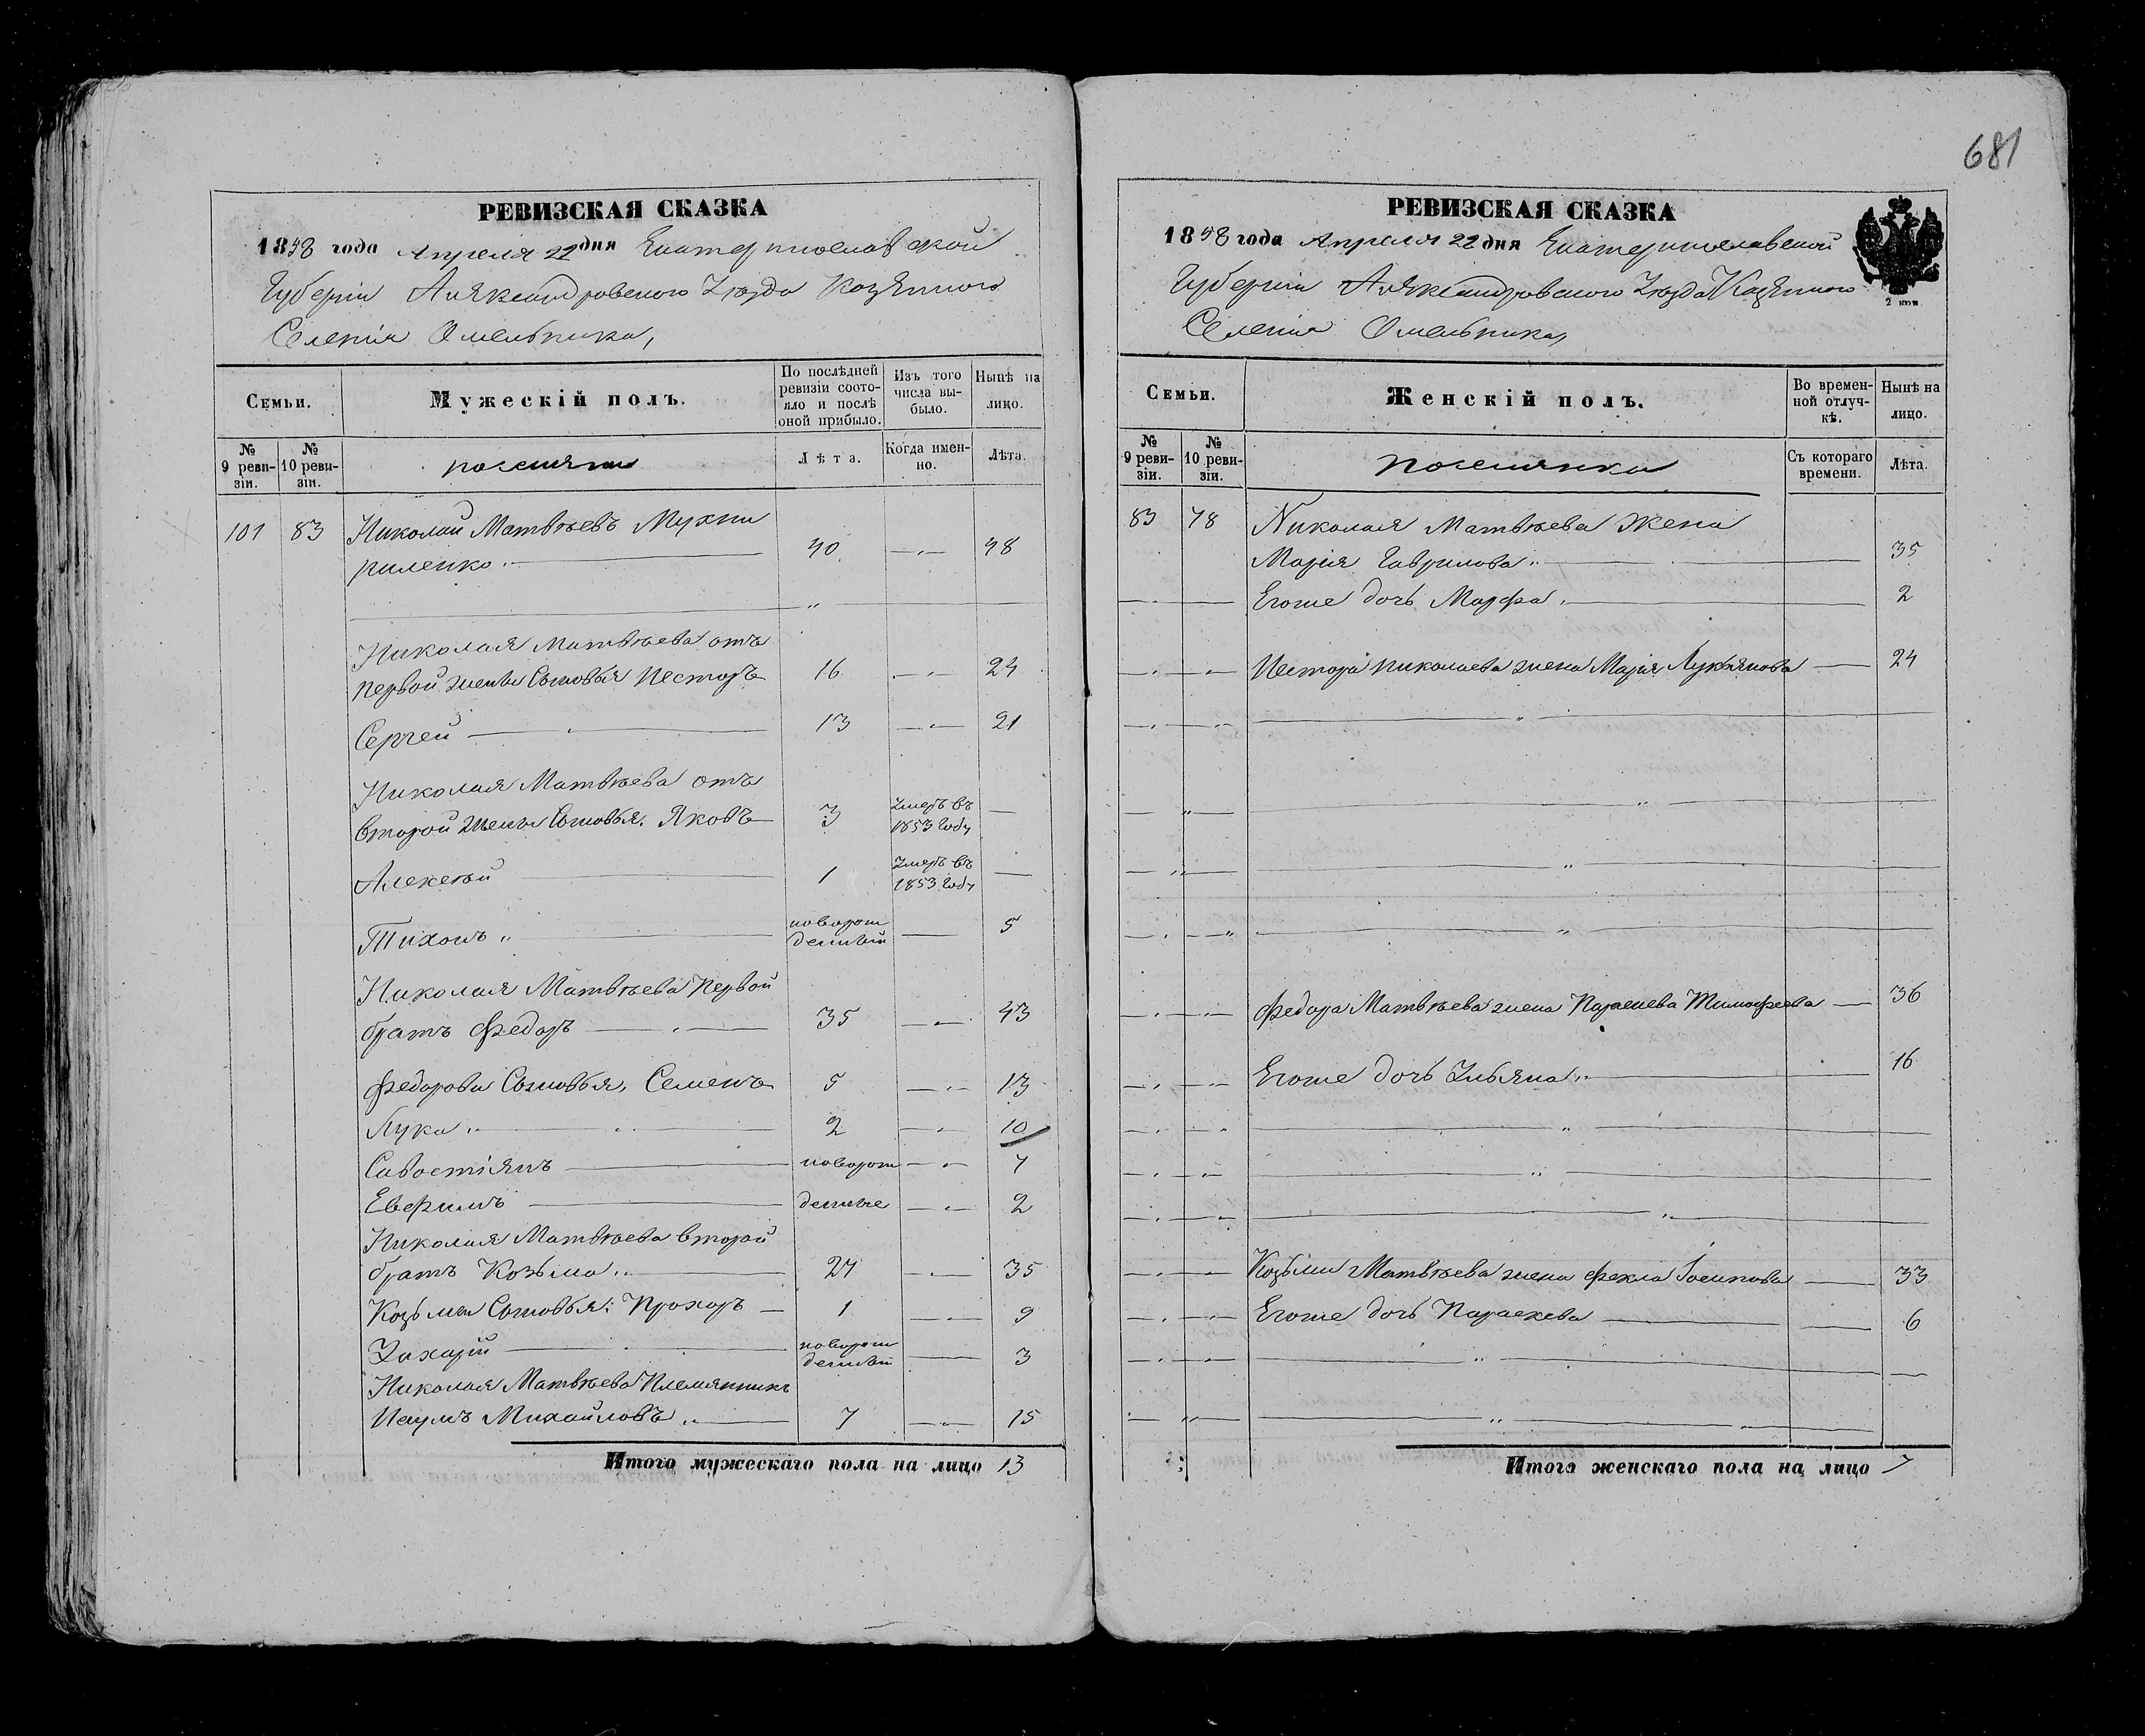 681
РЕВИЗСКАЯ СКАЗКА
1858 года Апреля 22 дня Екатеринославской
Губерніи Аляксандровского Уѣзда Казенного
Селенія Омельника,
Семьи.
Мужескій полъ.
По послѣдней ревизіи состо-
яло и послѣ
оной прибыло.
Изъ того
числа вы-
было.
Нынѣ на
лицо.
№
9 реви-
зіи.
№
10 реви-
зіи.
поселяни
Лѣта.
Когда имен-
но.
Лѣта.
101 83 Николай Матвѣевъ Мухи
риленко 40 48
Николая Матвѣева отъ
первой жены Сыновья Несторъ 16 24
Сергей 13 21
Николая Матвѣева отъ
второй жены Сыновья. Яковъ 3 Умеръ въ 1853 году
Алексѣй 1 Умеръ въ 1853 году
Тихонъ новорож денный 5
Николая Матвѣева Первой
братъ Федоръ 35 43
Федоровы Сыновья, Семенъ 5 13
Лука 2 10
Савостіянъ новорож 7
Евфимъ денные 2
Николая Матвѣева второй
братъ Козьма 27 35
Козьмы Сыновья: Прохоръ 1 9
Захарій новорож денный 3
Николая Матвѣева Племянникъ
Наумъ Михайловъ 7 15
Итого мужескаго пола на лицо 13
РЕВИЗСКАЯ СКАЗКА
1858 года Апреля 22 дня Екатеринославской
Губерніи Аляксандровского Уѣзда Казенного
Селенія Омельника,
2 коп
Семьи.
Женскій полъ.
Во времен-
ной отлуч-
кѣ.
Нынѣ на
лицо.
№
9 реви-
зіи.
№
10 реви-
зіи.
поселянки
Съ котораго
времени.
Лѣта.
83 78 Николая Матвѣева жена
Марія Гаврилова 35
Егоже дочь Марфа 2
Нестора Николаева жена Марія Лукьянова 24
Федора Матвѣева жена Параскева Тимофеева 36
Егоже дочь Ульяна 16
Козьмы Матвѣева жена Фекла Іосипова 33
Егоже дочь Параскева 6
Итого женскаго пола на лицо 7